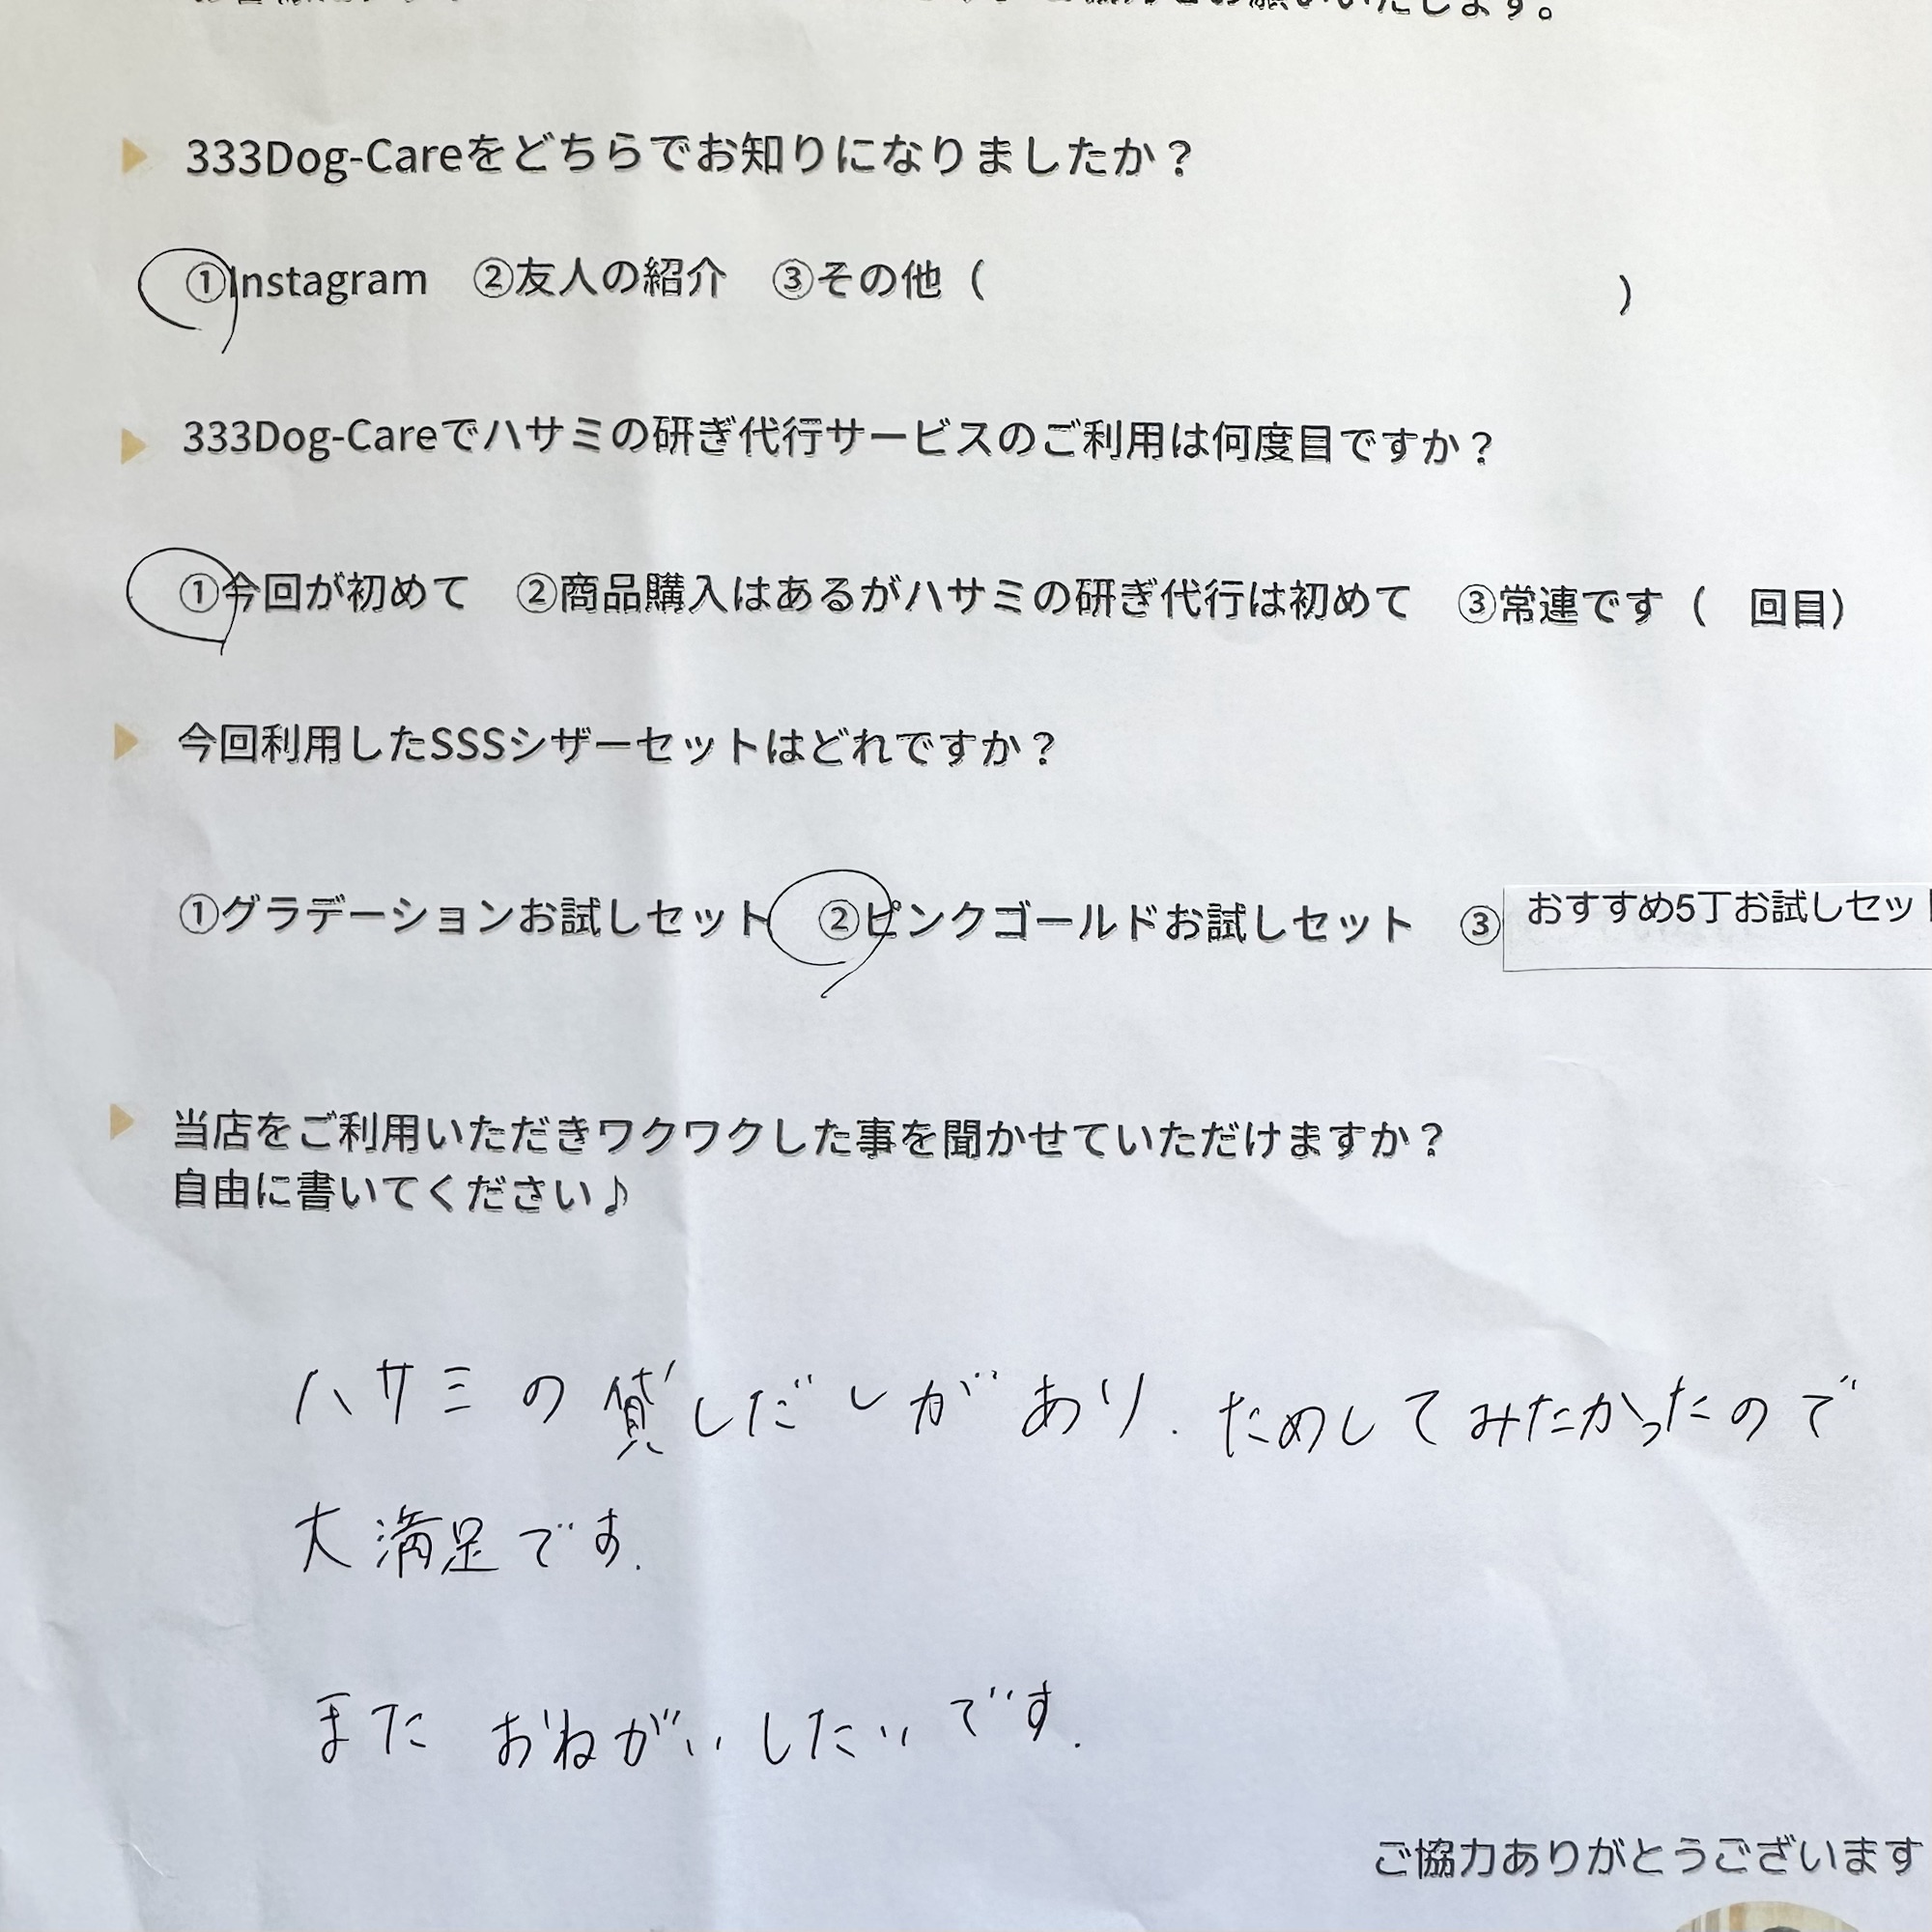 333Dog-Careをどちらでお知りになりましたか？
①Instagram　②友人の紹介　③その他（　）
333Dog-Careでハサミの研ぎ代行サービスのご利用は何度目ですか？
①今回が初めて　②商品購入はあるがハサミの研ぎ代行は初めて　③常連です（　回目）
今回利用したSSSシザーセットはどれですか？
①グラデーションお試しセット　②ピンクゴールドお試しセット　③おすすめ5丁お試しセット
当店をご利用いただきワクワクした事を聞かせていただけますか？
自由に書いてください♪
ハサミの貸しだしがあり.ためしてみたかったので
大満足です.
また おねがいしたいです.
ご協力ありがとうございます